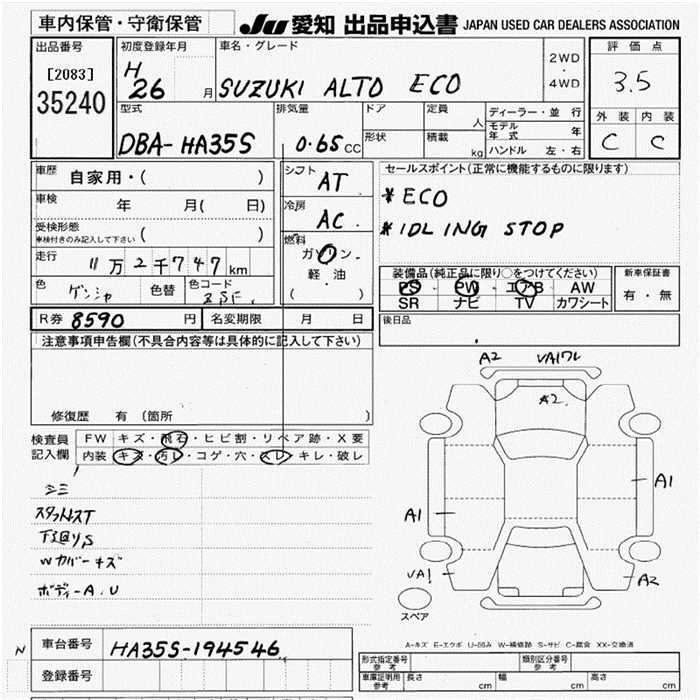 車内保管・守衛保管
JU 愛知 出品申込書 JAPAN USED CAR DEALERS ASSOCIATION
出品番号
[2083]
35240
初度登録年月
H
26 月
車名・グレード
SUZUKI ALTO ECO
2WD
・
4WD
評価点
3.5
外装 内装
C C
型式
DBA-HA35S
排気量
0.65 CC
ドア
形状
定員
人
積載
kg
ディーラー・並行
モデル年式 年
ハンドル 左・右
車歴
自家用・( )
車検
年 月( 日)
受検形態
※検付きのみ記入して下さい ( )
走行
11万2千747km
色
色替
色コード
シフト
AT
冷房
AC
燃料
ガソリン
軽・油
( )
セールスポイント(正常に機能するものに限ります)
*ECO
*IDLING STOP
装備品(純正品に限り○をつけてください)
PS PW エアB AW
SR ナビ TV カワシート
新車保証書
有・無
R券 8590 円 名変期限 月 日
後日品
注意事項申告欄(不具合内容等は具体的に記入して下さい)
修復歴 有(箇所 )
検査員
記入欄
FW キズ・飛石・ヒビ割・リペア跡・X要
内装 キズ・汚レ・コゲ・穴・スレ・キレ・破レ
シミ
スタットレスT
下廻りS
Wカバーキズ
ボディーA.U
A2 VA1ワレ
A2.
A1
A1
VA1
A2
スペア
A-キズ E-エクボ U-凹み W-補修跡 S-サビ C-腐食 XX-交換済
N
車台番号 HA35S-194546
登録番号
形式指定番号
参考
類別区分番号
参考
車庫証明用
参考
長さ cm 幅 cm 高さ cm